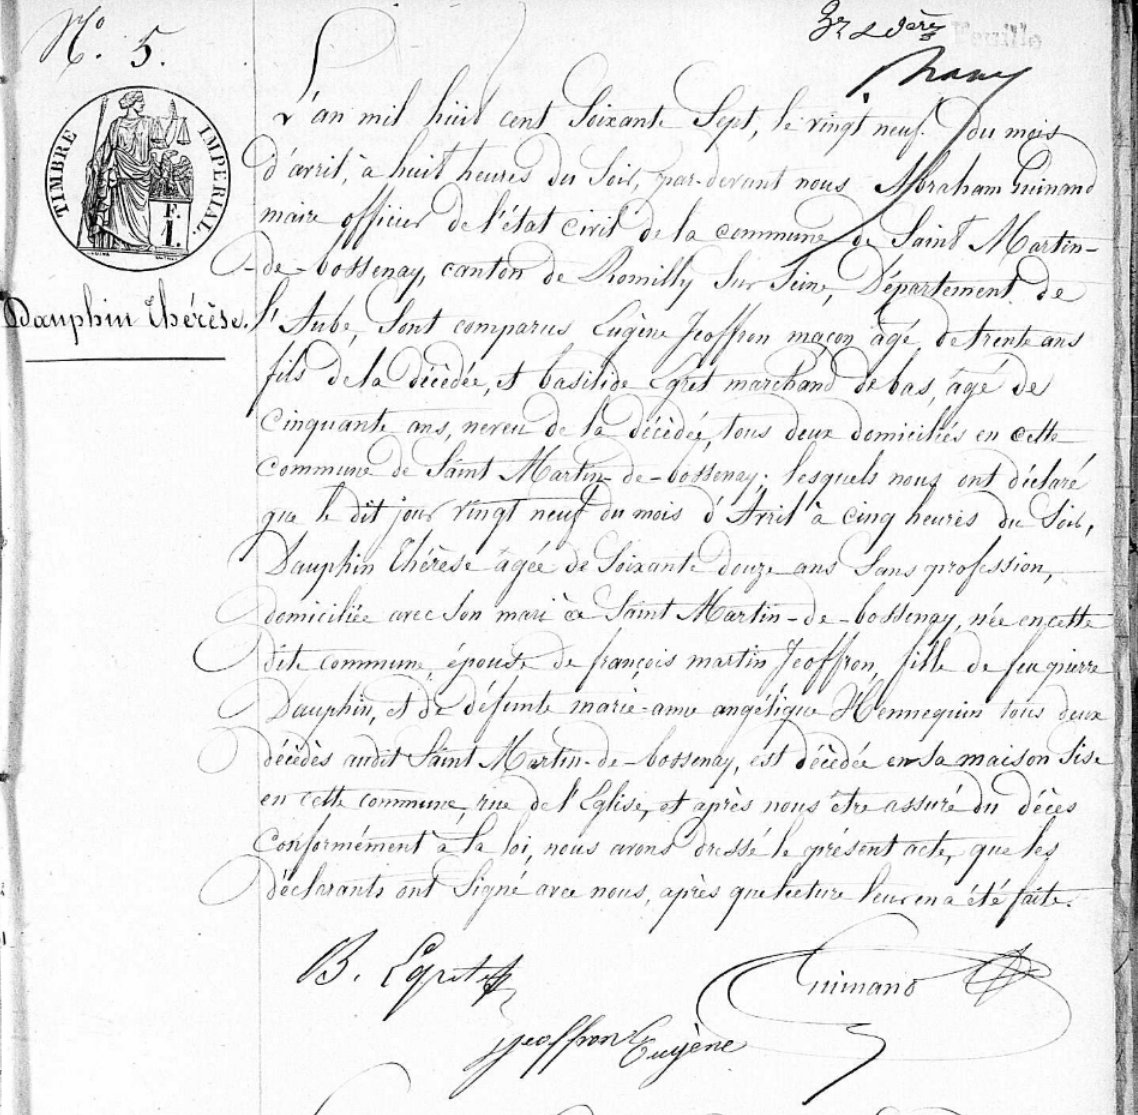 N.º 5.
TIMBRE IMPERIAL.
F.
1.
Dauphin Thérèse.
L'an mil huit cent Soixante Sept, le vingt neuf du mois
d'avril, à huit heures du Soir, par-devant nous Abraham Guinand
maire officier de l'état civil de la commune de Saint Martin-
-de-bossenay, canton de Romilly Sur Seine, Département de
l'Aube, Sont comparus Eugène Jeoffron maçon âgé de trente ans
fils de la décèdée, et basilide Egret marchand de bas, âgé de
Cinquante ans, neveu de la décèdée, tous deux domiciliés en cette
commune de Saint Martin-de-bossenay; lesquels nous ont déclaré
que le dit jour vingt neuf du mois d'Avril à cinq heures du Soir,
Dauphin Thérèse âgée de Soixante douze ans Sans profession,
domiciliée avec Son mari à Saint Martin-de-bossenay, née en cette
dite commune, épouse de françois martin Jeoffron, fille de feu pierre
Dauphin, et de défunte marie-anne angélique Hennequin tous deux
décèdés audit Saint Martin-de-bossenay, est décèdée en Sa maison Sise
en cette commune, rue de l'Eglise, et après nous être assuré du décès
conformément à la loi, nous avons dressé le présent acte, que les
déclarants ont Signé avec nous, après que lecture leur en a été faite.
B. Egret
Guinand
Jeoffron Eugène